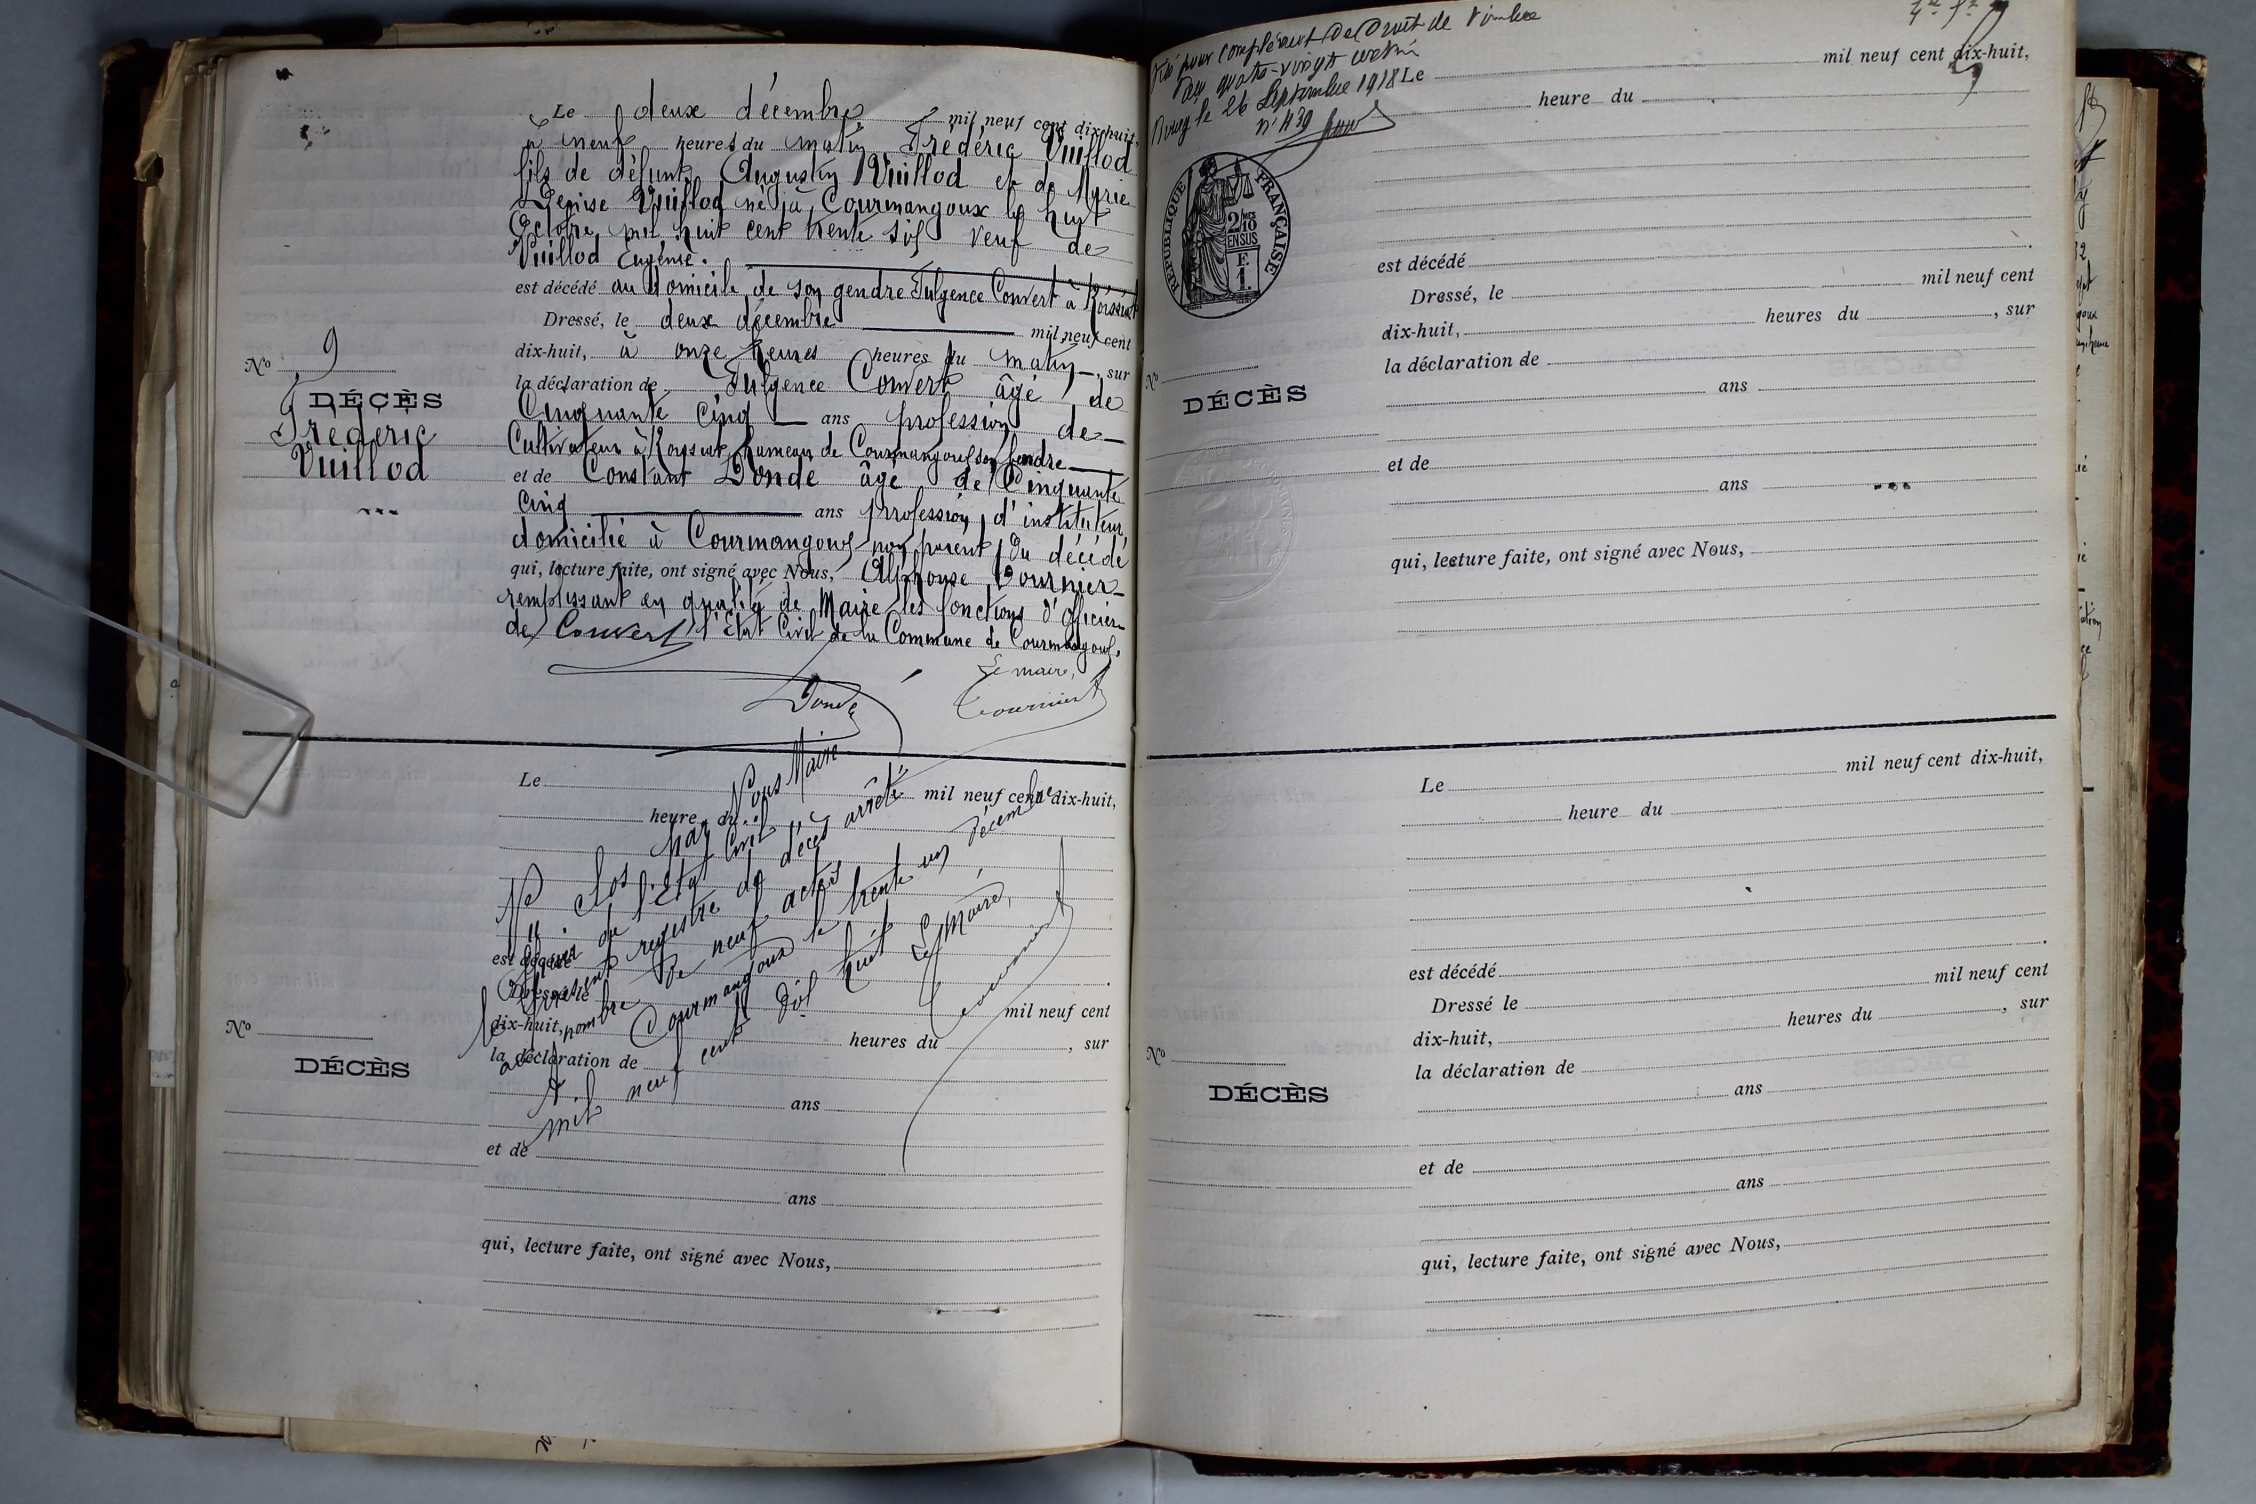 Le deux décembre mil neuf cent dix-huit,
à neuf heures du matin Frédéric Vuillod
fils de défunt Augustin Vuillod et de Marie
Denise Vuillod né à Courmangoux le huit
Octobre mil huit cent trente six veuf de
Vuillod Eugénie.
est décédé au domicile de son gendre Fulgence Convert à Roissiat
Dressé, le deux décembre mil neuf cent
dix-huit, à onze heures heures du matin, sur
la déclaration de Fulgence Convert âgé de
Cinquante cinq ans profession de
Cultivateur à Roissiat hameau de Courmangoux son gendre
et de Constant Donde âgé de Cinquante
Cinq ans profession d'instituteur
domicilié à Courmangoux non parent du décédé
qui, lecture faite, ont signé avec Nous, Alphonse Tournier
remplissant en qualité de Maire les fonctions d'Officier
de l'Etat Civil de la Commune de Courmangoux.
Convert
Le maire,
Donde
Tournier
No 9
DÉCÈS
Frédéric
Vuillod
Le mil neuf cent dix-huit,
heure du
est décédé
Dressé le mil neuf cent
dix-huit, heures du , sur
la déclaration de
ans
et de
ans
qui, lecture faite, ont signé avec Nous,
No
DÉCÈS
Clos par Nous Maire
Officier de l'Etat Civil
le présent registre de décès arrêté
au nombre de neuf actes
A Courmangoux le trente un décembre
mil neuf cent dix huit
Le Maire,
Tournier
Visé pour complément de Droit de Timbre
quatre-vingt
Bourg le 26 Septembre 1918
No 439
RÉPUBLIQUE FRANÇAISE
2/10
EN SUS
F.
1.
Le mil neuf cent dix-huit,
heure du
est décédé
Dressé, le mil neuf cent
dix-huit, heures du , sur
la déclaration de
ans
et de
ans
qui, lecture faite, ont signé avec Nous,
No
DÉCÈS
Le mil neuf cent dix-huit,
heure du
est décédé
Dressé le mil neuf cent
dix-huit, heures du , sur
la déclaration de
ans
et de
ans
qui, lecture faite, ont signé avec Nous,
No
DÉCÈS